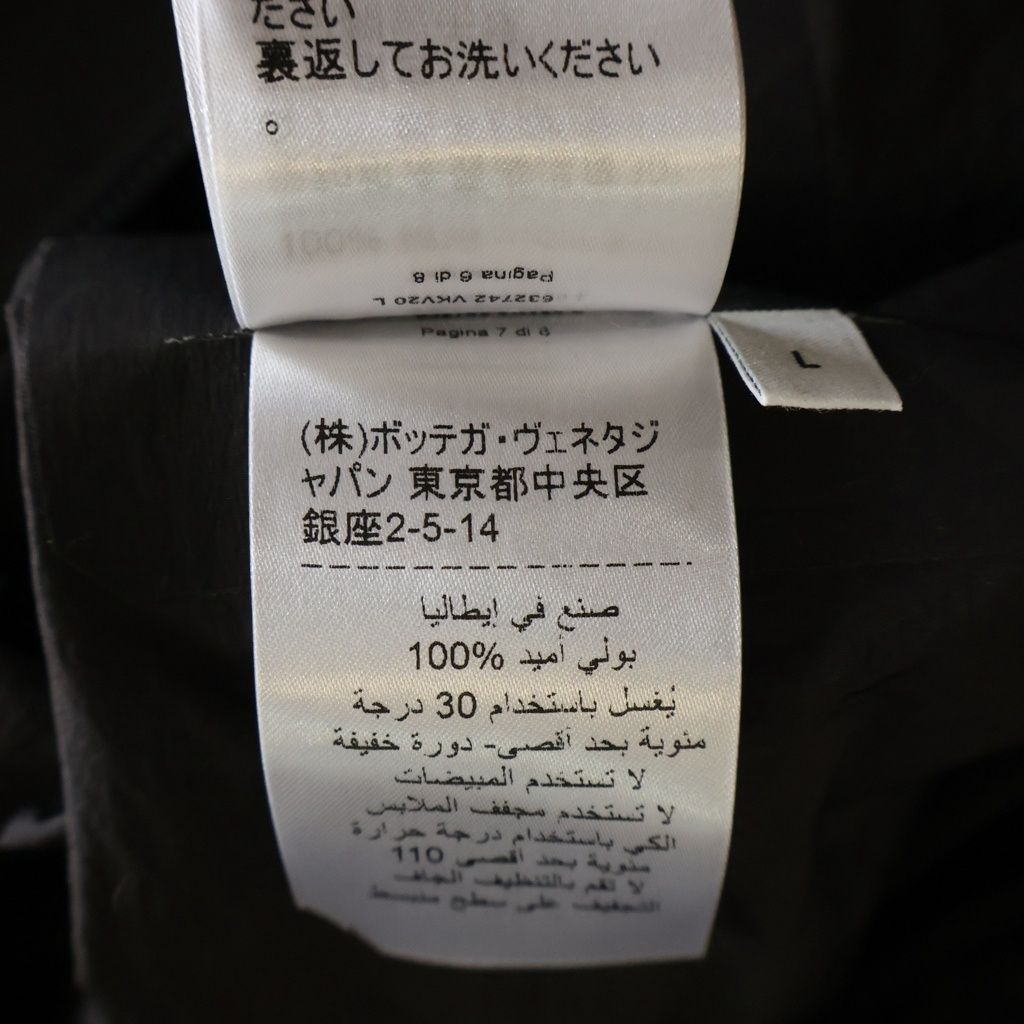 ださい
裏返してお洗いください
。
Pagina 6 di 8
632742 VKV20 L
Pagina 7 di 8
L
(株)ボッテガ・ヴェネタジ
ャパン 東京都中央区
銀座2-5-14
صنع في إيطاليا
بولي أميد %100
يُغسل باستخدام 30 درجة
مئوية بحد أقصى- دورة خفيفة
لا تستخدم المبيضات
لا تستخدم مجفف الملابس
الكي باستخدام درجة حرارة
مئوية بحد أقصى 110
لا تقم بالتنظيف الجاف
التجفيف على سطح منبسط